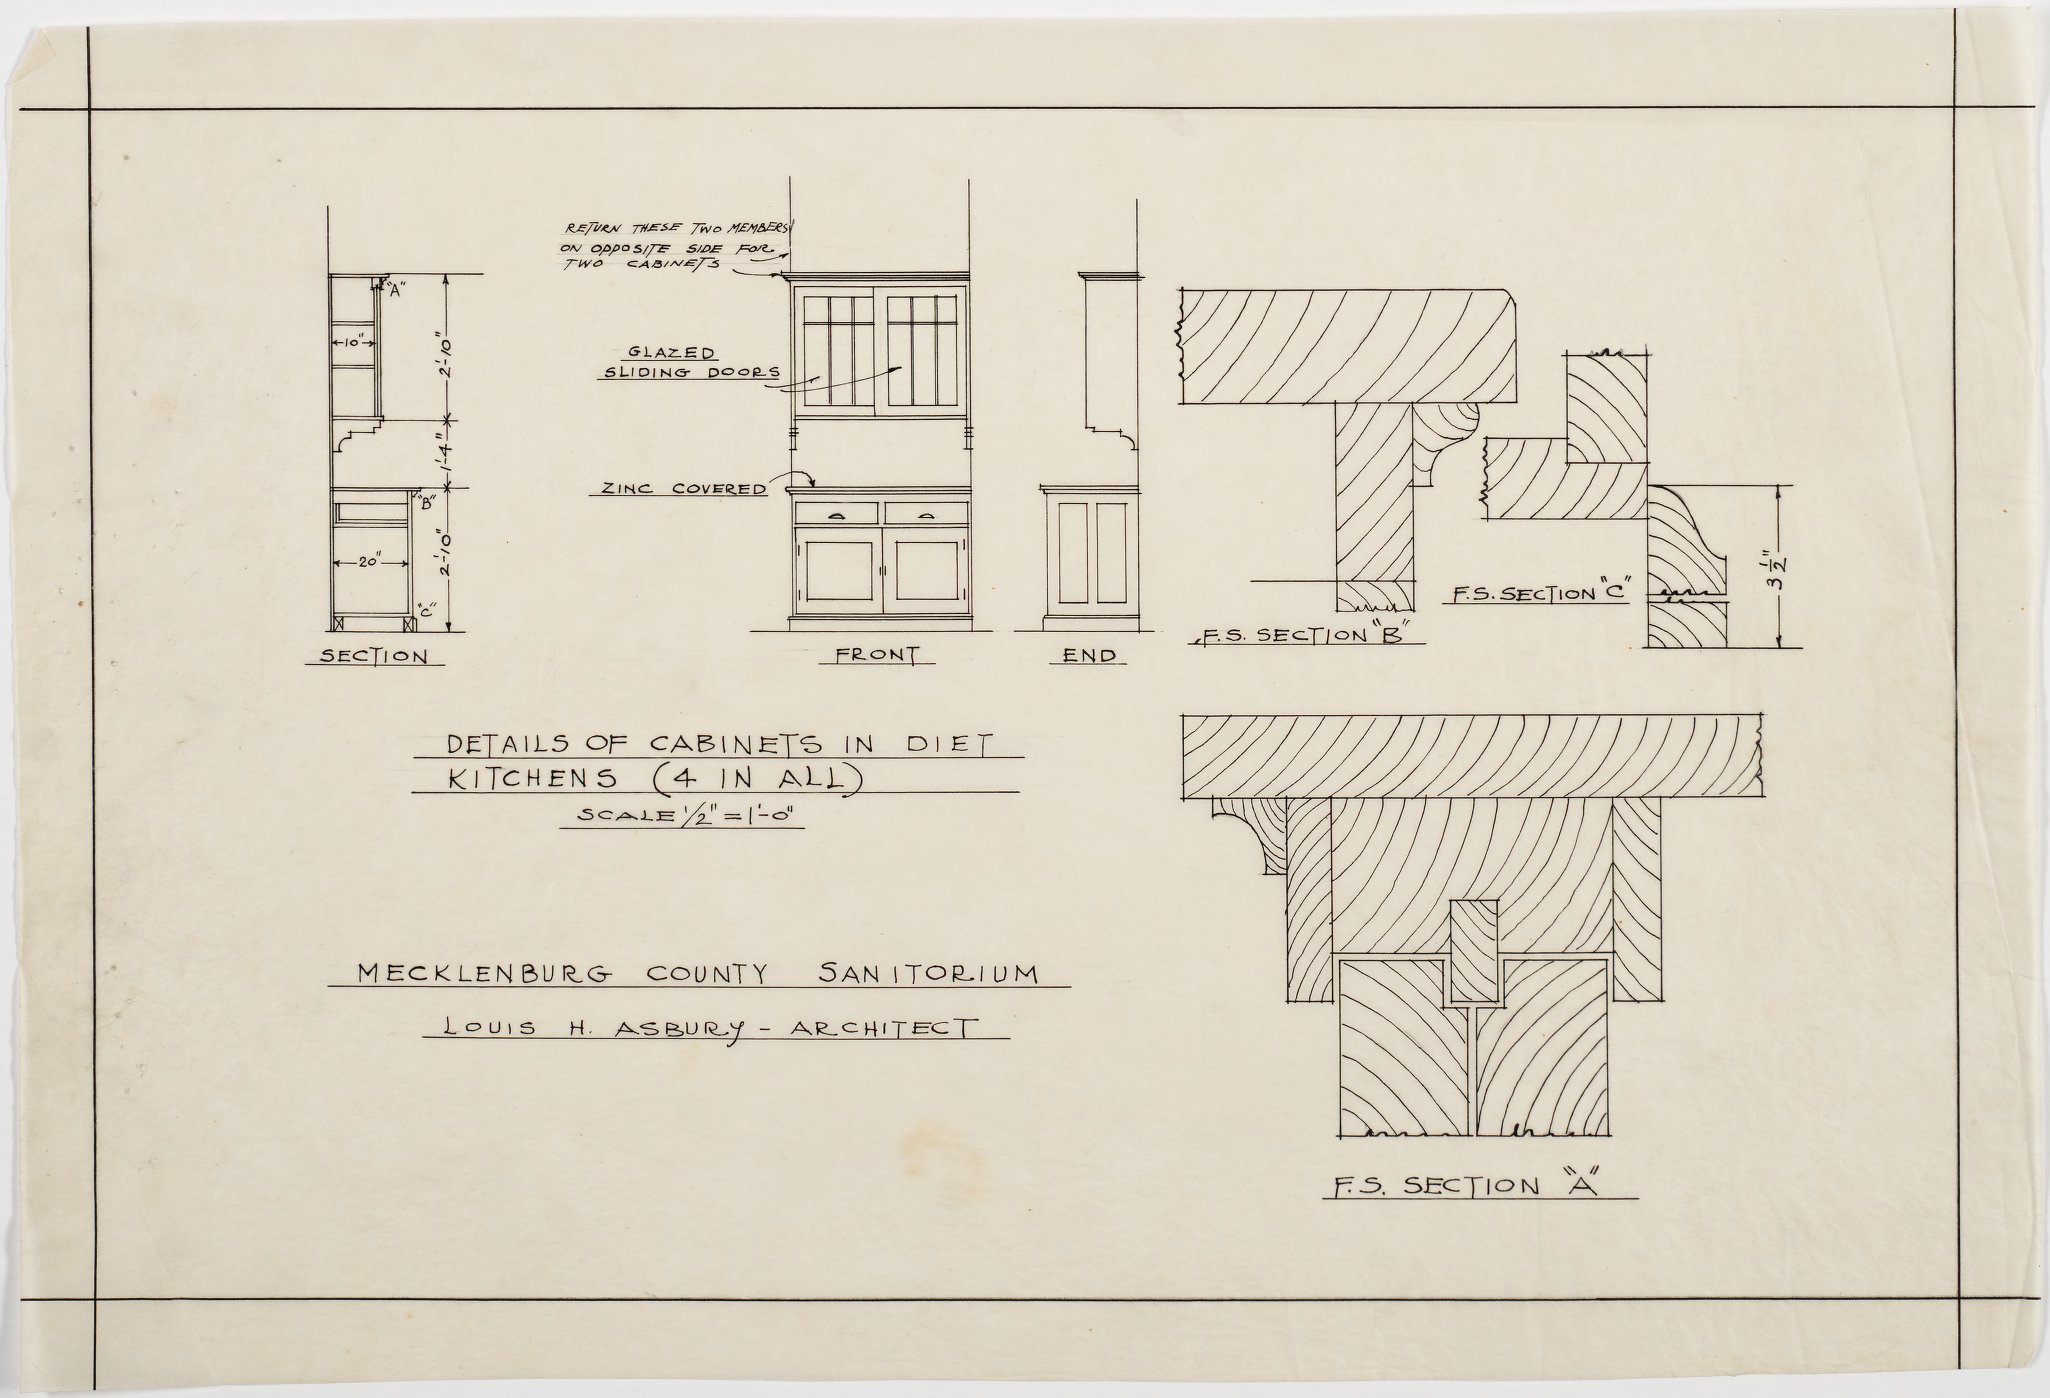 RETURN THESE TWO MEMBERS
ON OPPOSITE SIDE FOR
TWO CABINETS
"A"
10"
2'-10"
GLAZED
SLIDING DOORS
1'-4"
ZINC COVERED
"B"
20"
2'-10"
"C"
SECTION
FRONT
END
F.S. SECTION "B"
F.S. SECTION "C"
3 1/2"
DETAILS OF CABINETS IN DIET
KITCHENS (4 IN ALL)
SCALE 1/2" = 1'-0"
MECKLENBURG COUNTY SANITORIUM
LOUIS H. ASBURY - ARCHITECT
F.S. SECTION "A"